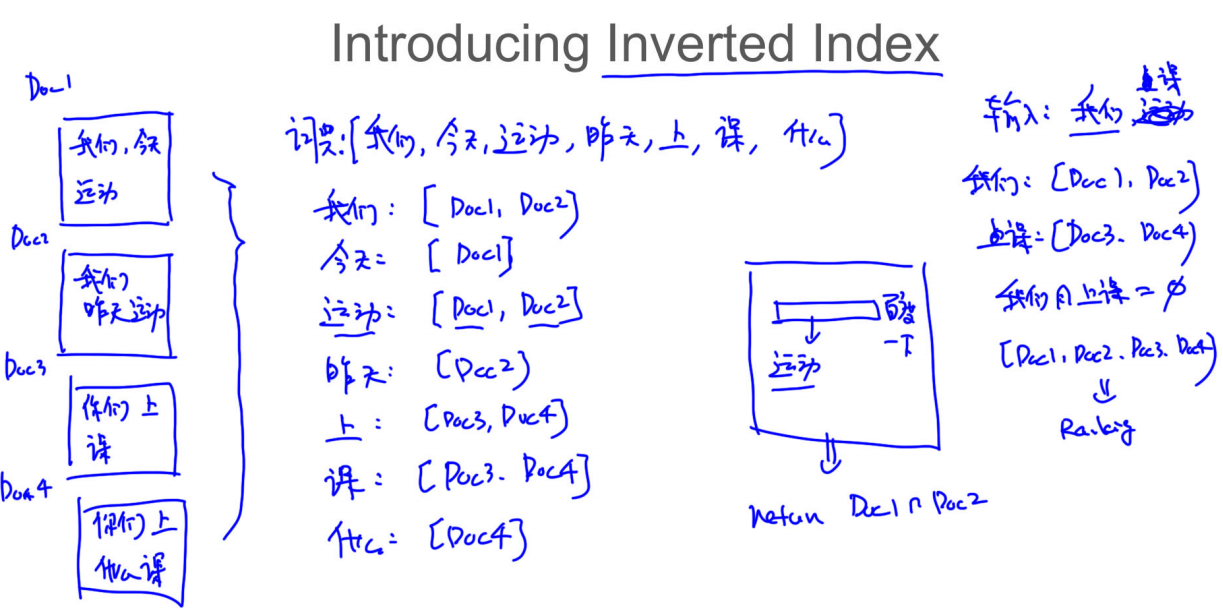 Introducing Inverted Index
Doc1
我们,今天
运动
Doc2
我们
昨天运动
Doc3
你们 上
课
Doc4
你们 上
什么课
词典:[我们, 今天, 运动, 昨天, 上, 课, 什么]
我们: [Doc1, Doc2]
今天: [Doc1]
运动: [Doc1, Doc2]
昨天: [Doc2]
上: [Doc3, Doc4]
课: [Doc3、Doc4]
什么: [Doc4]
百度
一下
运动
return Doc1 ∩ Doc2
上课
输入: 我们 运动
我们: [Doc1, Doc2]
上课: [Doc3、Doc4]
我们 ∩ 上课 = ∅
[Doc1, Doc2、Doc3、Doc4]
Ranking